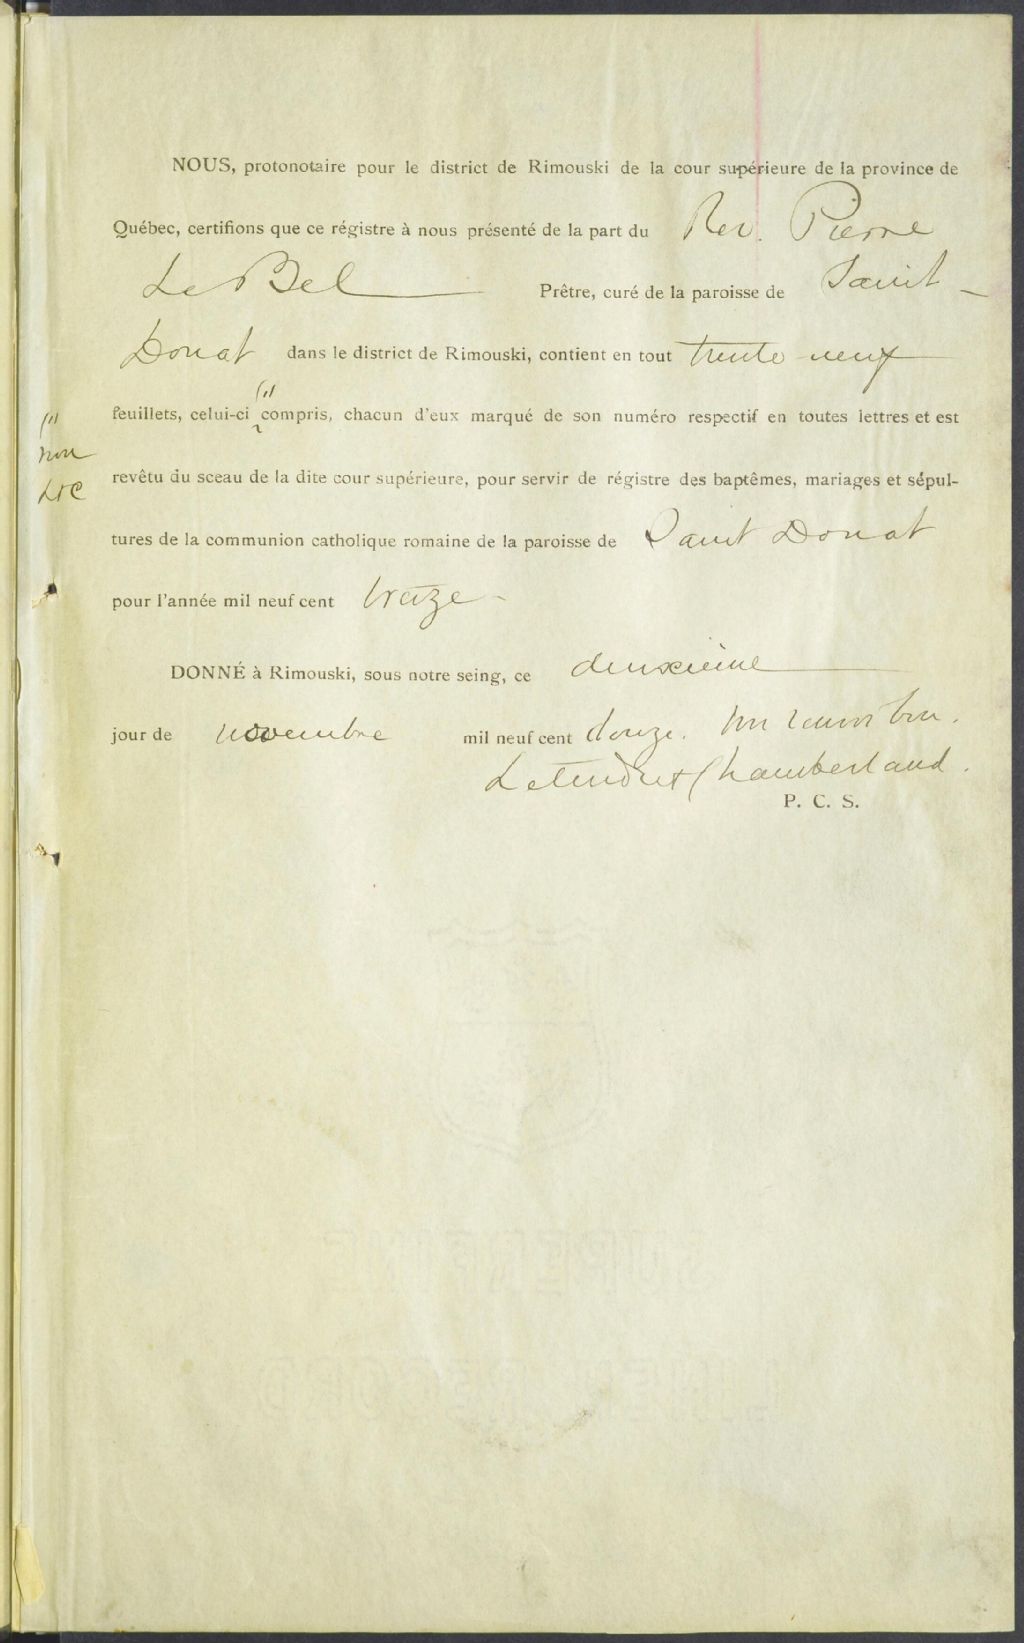 NOUS, protonotaire pour le district de Rimouski de la cour supérieure de la province de
Québec, certifions que ce régistre à nous présenté de la part du Rev. Pierre
LeBel Prêtre, curé de la paroisse de Saint-
Donat dans le district de Rimouski, contient en tout trente neuf
feuillets, celui-ci compris, chacun d'eux marqué de son numéro respectif en toutes lettres et est
non
L&C
revêtu du sceau de la dite cour supérieure, pour servir de régistre des baptêmes, mariages et sépul-
tures de la communion catholique romaine de la paroisse de Saint Donat
pour l'année mil neuf cent treize-
DONNÉ à Rimouski, sous notre seing, ce deuxième
jour de novembre mil neuf cent douze. Un renvoi bon.
Letendre & Chamberland.
P. C. S.